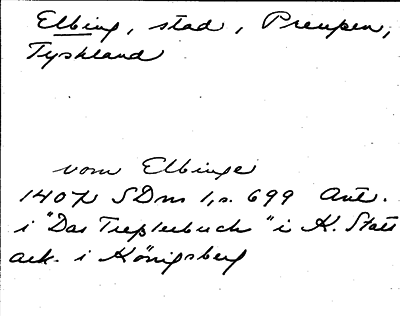 Elbing, stad, Preuβen,
Tyskland
vom Elbinge
1407 SDns 1, s. 699 Ant.
i "Das Treplerbuch" i K. Stats
ark. i Königsberg